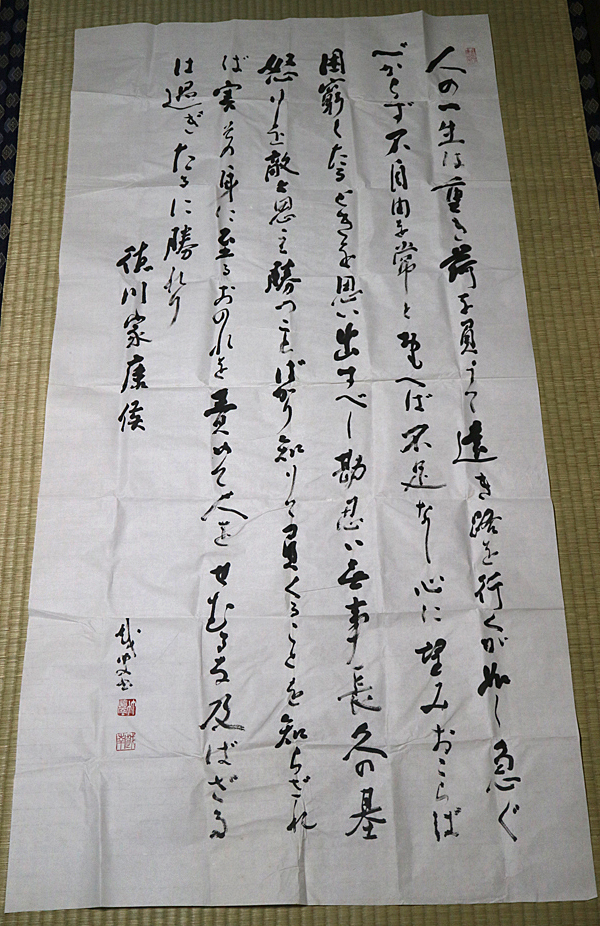 人の一生は重き荷を負うて遠き路を行くが如し急ぐ
べからず不自由を常と思へば不足なし心に望みおこらば
困窮したるときを思い出すべし勘忍は無事長久の基
怒りを敵と思え勝つことばかり知りて負くることを知らざれ
ば害その身に至るおのれを責めて人をせむるな及ばざる
は過ぎたるに勝れり
徳川家康候